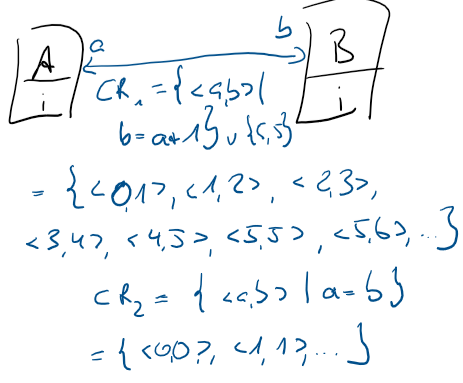 a b
A B
i i
CR₁ = {<a,b>|
b=a+1} ∪ {5,5}
= {<0,1>, <1,2>, <2,3>,
<3,4>, <4,5>, <5,5>, <5,6>, ...}
CR₂ = {<a,b> | a=b}
= {<0,0>, <1,1>, ...}